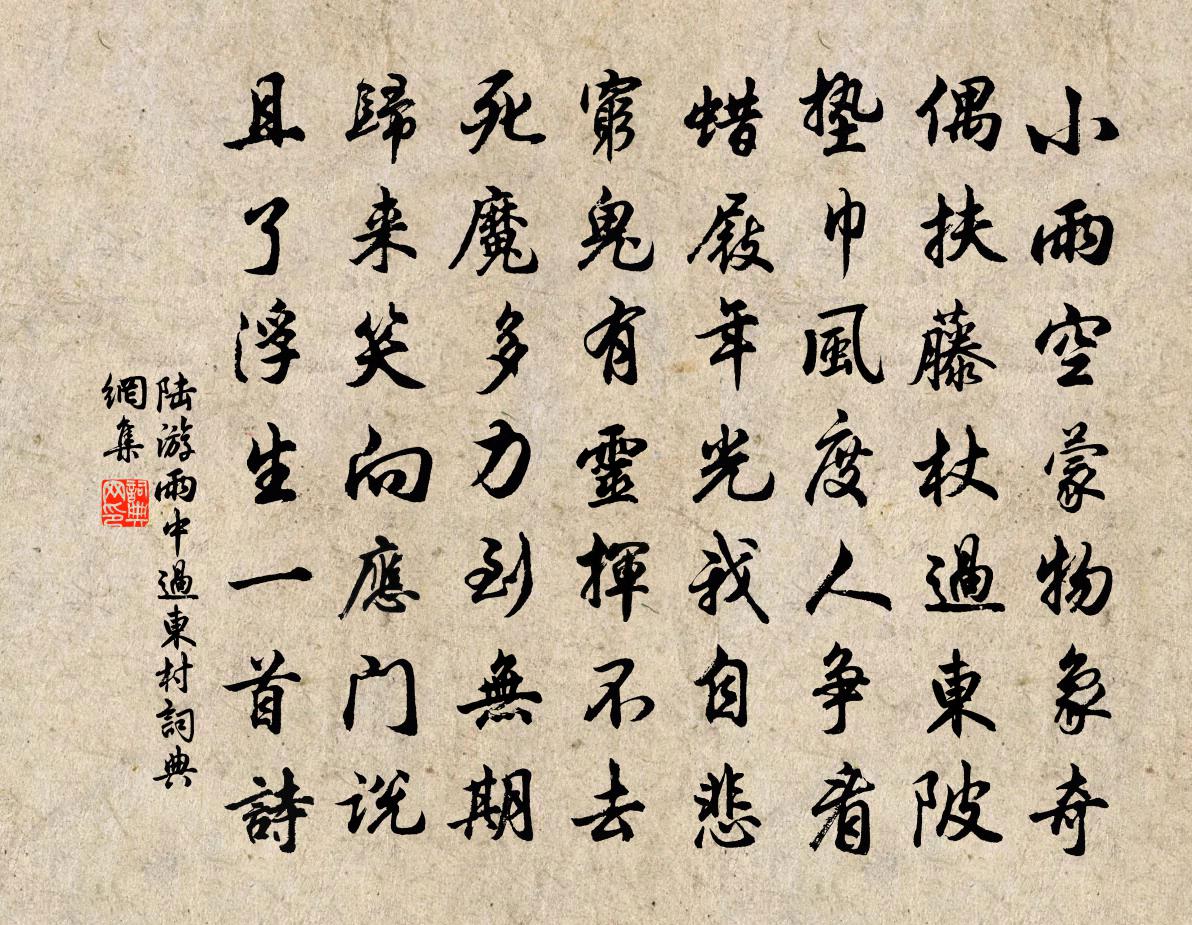 小雨空蒙物象奇
偶扶藤杖過東陂
墊巾風度人爭看
蜡屐年光我自悲
窮鬼有靈揮不去
死魔多力到無期
歸来笑向應門説
且了浮生一首詩
陆游雨中過東村詞典
網集
詞典
网印